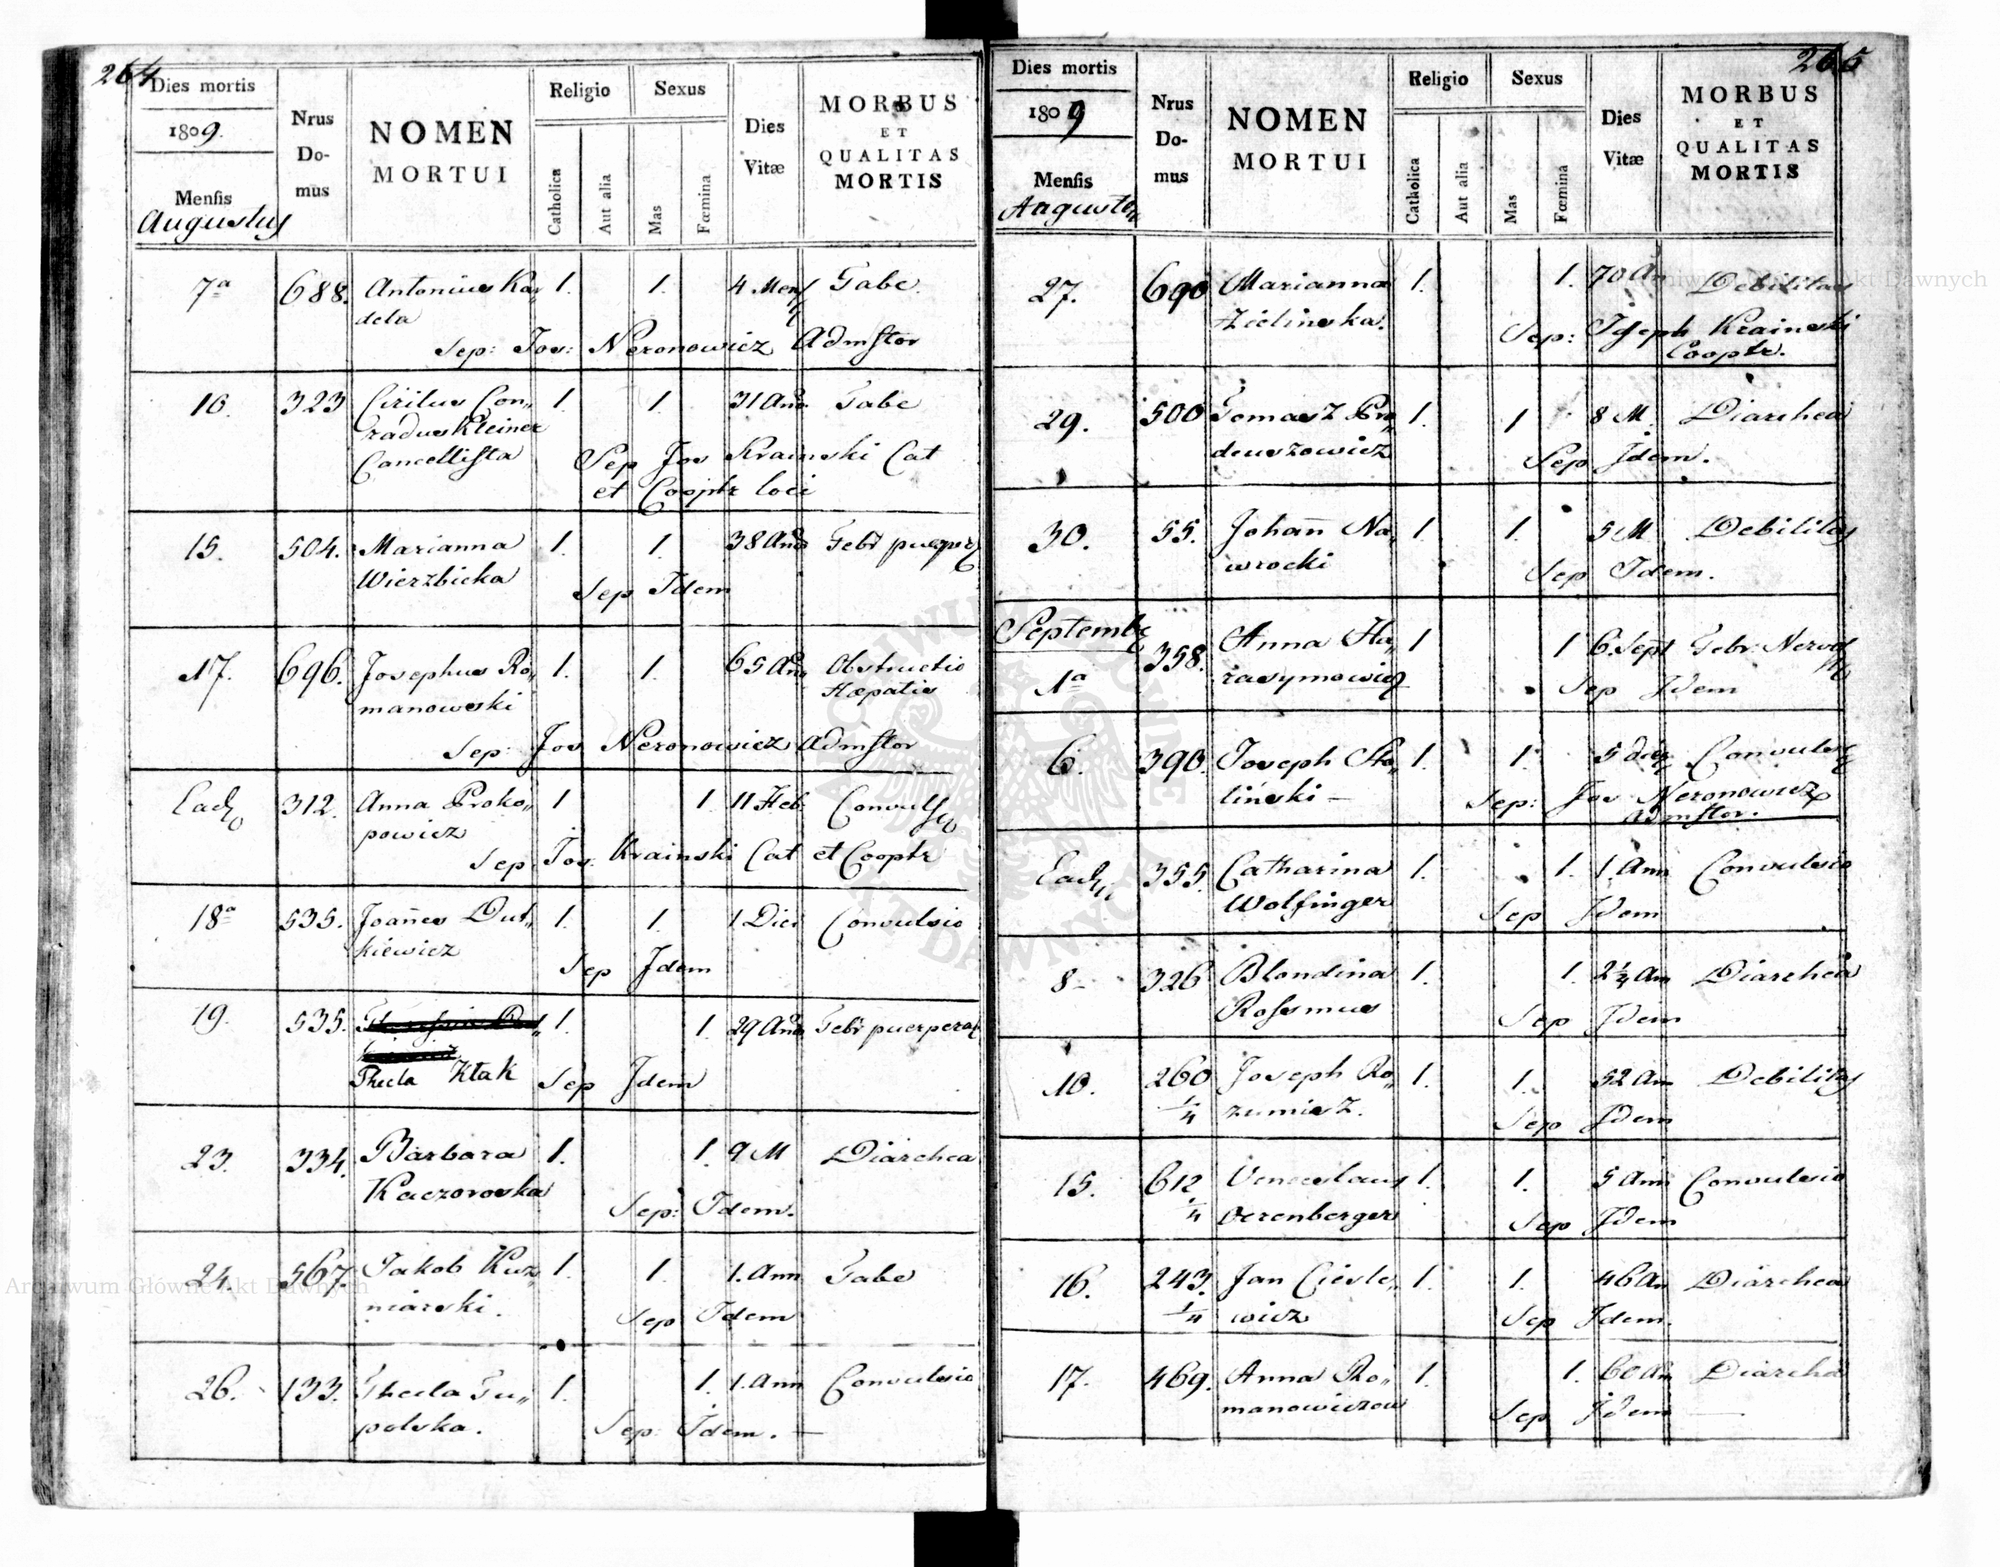 264
Dies mortis
1809.
Mensis
Augustus
Nrus Do-mus
NOMEN MORTUI
Religio
Catholica
Aut alia
Sexus
Mas
Fœmina
Dies Vitæ
MORBUS ET QUALITAS MORTIS
7a 688. Antonius Ka„ 1. 1. 4 Mens Tabe
dela
Sep: Jos: Neronowicz Admstor
10. 323 Cirilus Con„ 1. 1. 31 Ann Tabe
radus Kleiner
Cancellista Sep Jos Krainski Cat
et Cooptr loci
15. 504. Marianna 1. 1. 38 Ann Febr puerper
Wierzbicka Sep Idem
17. 696. Josephus Ro„ 1. 1. 65 Ann Obstructio
manowski Hæpatis
Sep: Jos Neronowicz Admstor
Ead 312. Anna Proko„ 1 1. 11 Heb. Convuls
powicz
Sep. Jos. Krainski Cat et Cooptr
18a 535. Joañes Dut„ 1. 1. 1 Diei Convulsio
kiewicz
Sep Idem
19. 535. 1. 1. 29 Ann Febr puerpera
Thecla Ktak Sep Idem
23. 334. Barbara 1. 1. 9 M Diarchea
Kaczorowska
Sep: Idem.
24. 567. Jakob Kuz„ 1. 1. 1. Ann Tabe
niarski.
Sep Idem
26. 133. Thecla Tu„ 1. 1. 1. Ann Convulsio
polska.
Sep: Idem. —
265
Dies mortis
1809
Mensis
Augustus
Nrus Do-mus
NOMEN MORTUI
Religio
Catholica
Aut alia
Sexus
Mas
Fœmina
Dies Vitæ
MORBUS ET QUALITAS MORTIS
27. 690 Marianna 1. 1. 70 An Debilitas
Zielinska.
Sep: Joseph Krainski
Cooptr.
29. 500 Tomasz Pro„ 1. 1 8 M. Diarchea
deuszowicz
Sep Idem.
30. 55. Johañ Na„ 1. 1. 5 M Debilitas
wrocki
Sep Idem.
Septembr
1a 358. Anna Ha„ 1 1 6. Sept Febr: Nervos
rasymowicz
Sep Idem
6. 390. Joseph Sto„ 1. 1. 5 dies Convuls
liński —
Sep: Jos Neronowicz
Admstor.
Ead 355. Catharina 1. 1. 1 Ann Convulsio
Wolfinger
Sep Idem
8 326 Blondina 1. 1. 2 1/4 Ann Diarchea
Rossmus
Sep Idem
10. 260 1/4 Joseph Ro„ 1. 1. 52 Ann Debilitas
zumicz.
Sep Idem
15. 612 1/4 Venceslaus 1. 1. 5 Ann Convulsio
Oerenberger
Sep Idem
16. 243. 1/4 Jan Ciesle„ 1. 1. 46 An Diarchea
wicz
Sep Idem.
17. 469. Anna Ro„ 1. 1. 60 An Diarchea
manowiczow
Sep Idem —
Archiwum Główne Akt Dawnych
Archiwum Główne Akt Dawnych
ARCHIWUM GŁÓWNE AKT DAWNYCH